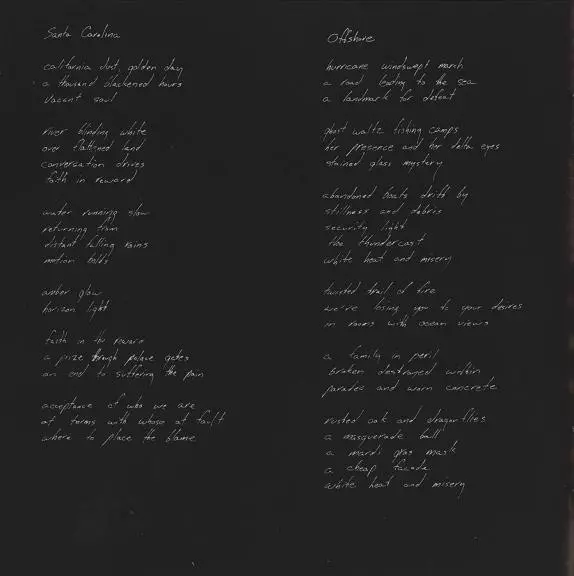 Santa Carolina
california dust golden day
a thousand blackened hours
vacant soul
river blinding white
over flattened land
conversation drives
faith in reward
water running slow
returning from
distant falling rains
motion holds
amber glow
horizon light
faith in the reward
a prize through palace gates
an end to suffering the pain
acceptance of who we are
at terms with whose at fault
where to place the blame
Offshore
hurricane windswept march
a road leading to the sea
a landmark for defeat
ghost waltz fishing camps
her presence and her delta eyes
stained glass mystery
abandoned boats drift by
stillness and debris
security light
the thundercast
white heat and misery
twisted trail of fire
we're losing you to your desires
in rooms with ocean views
a family in peril
broken destroyed within
parades and worn concrete
rusted oak and dragonflies
a masquerade ball
a mardi gras mask
a cheap facade
white heat and misery